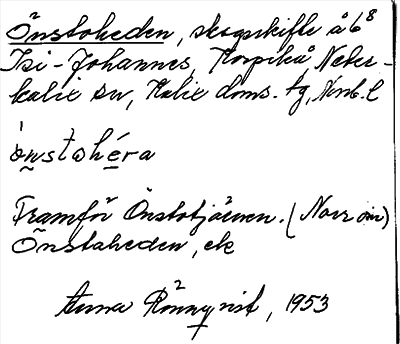 Önstoheden, skogsskifte å 6⁸
Isi-Johannes, Korpikå Neder-
kalix sn, Kalix doms. tg, Nrrb. l
ònstohéra
Framför Önstotjärnen. (Norr om)
Önstaheden, ek
Anna Rönnqvist, 1953